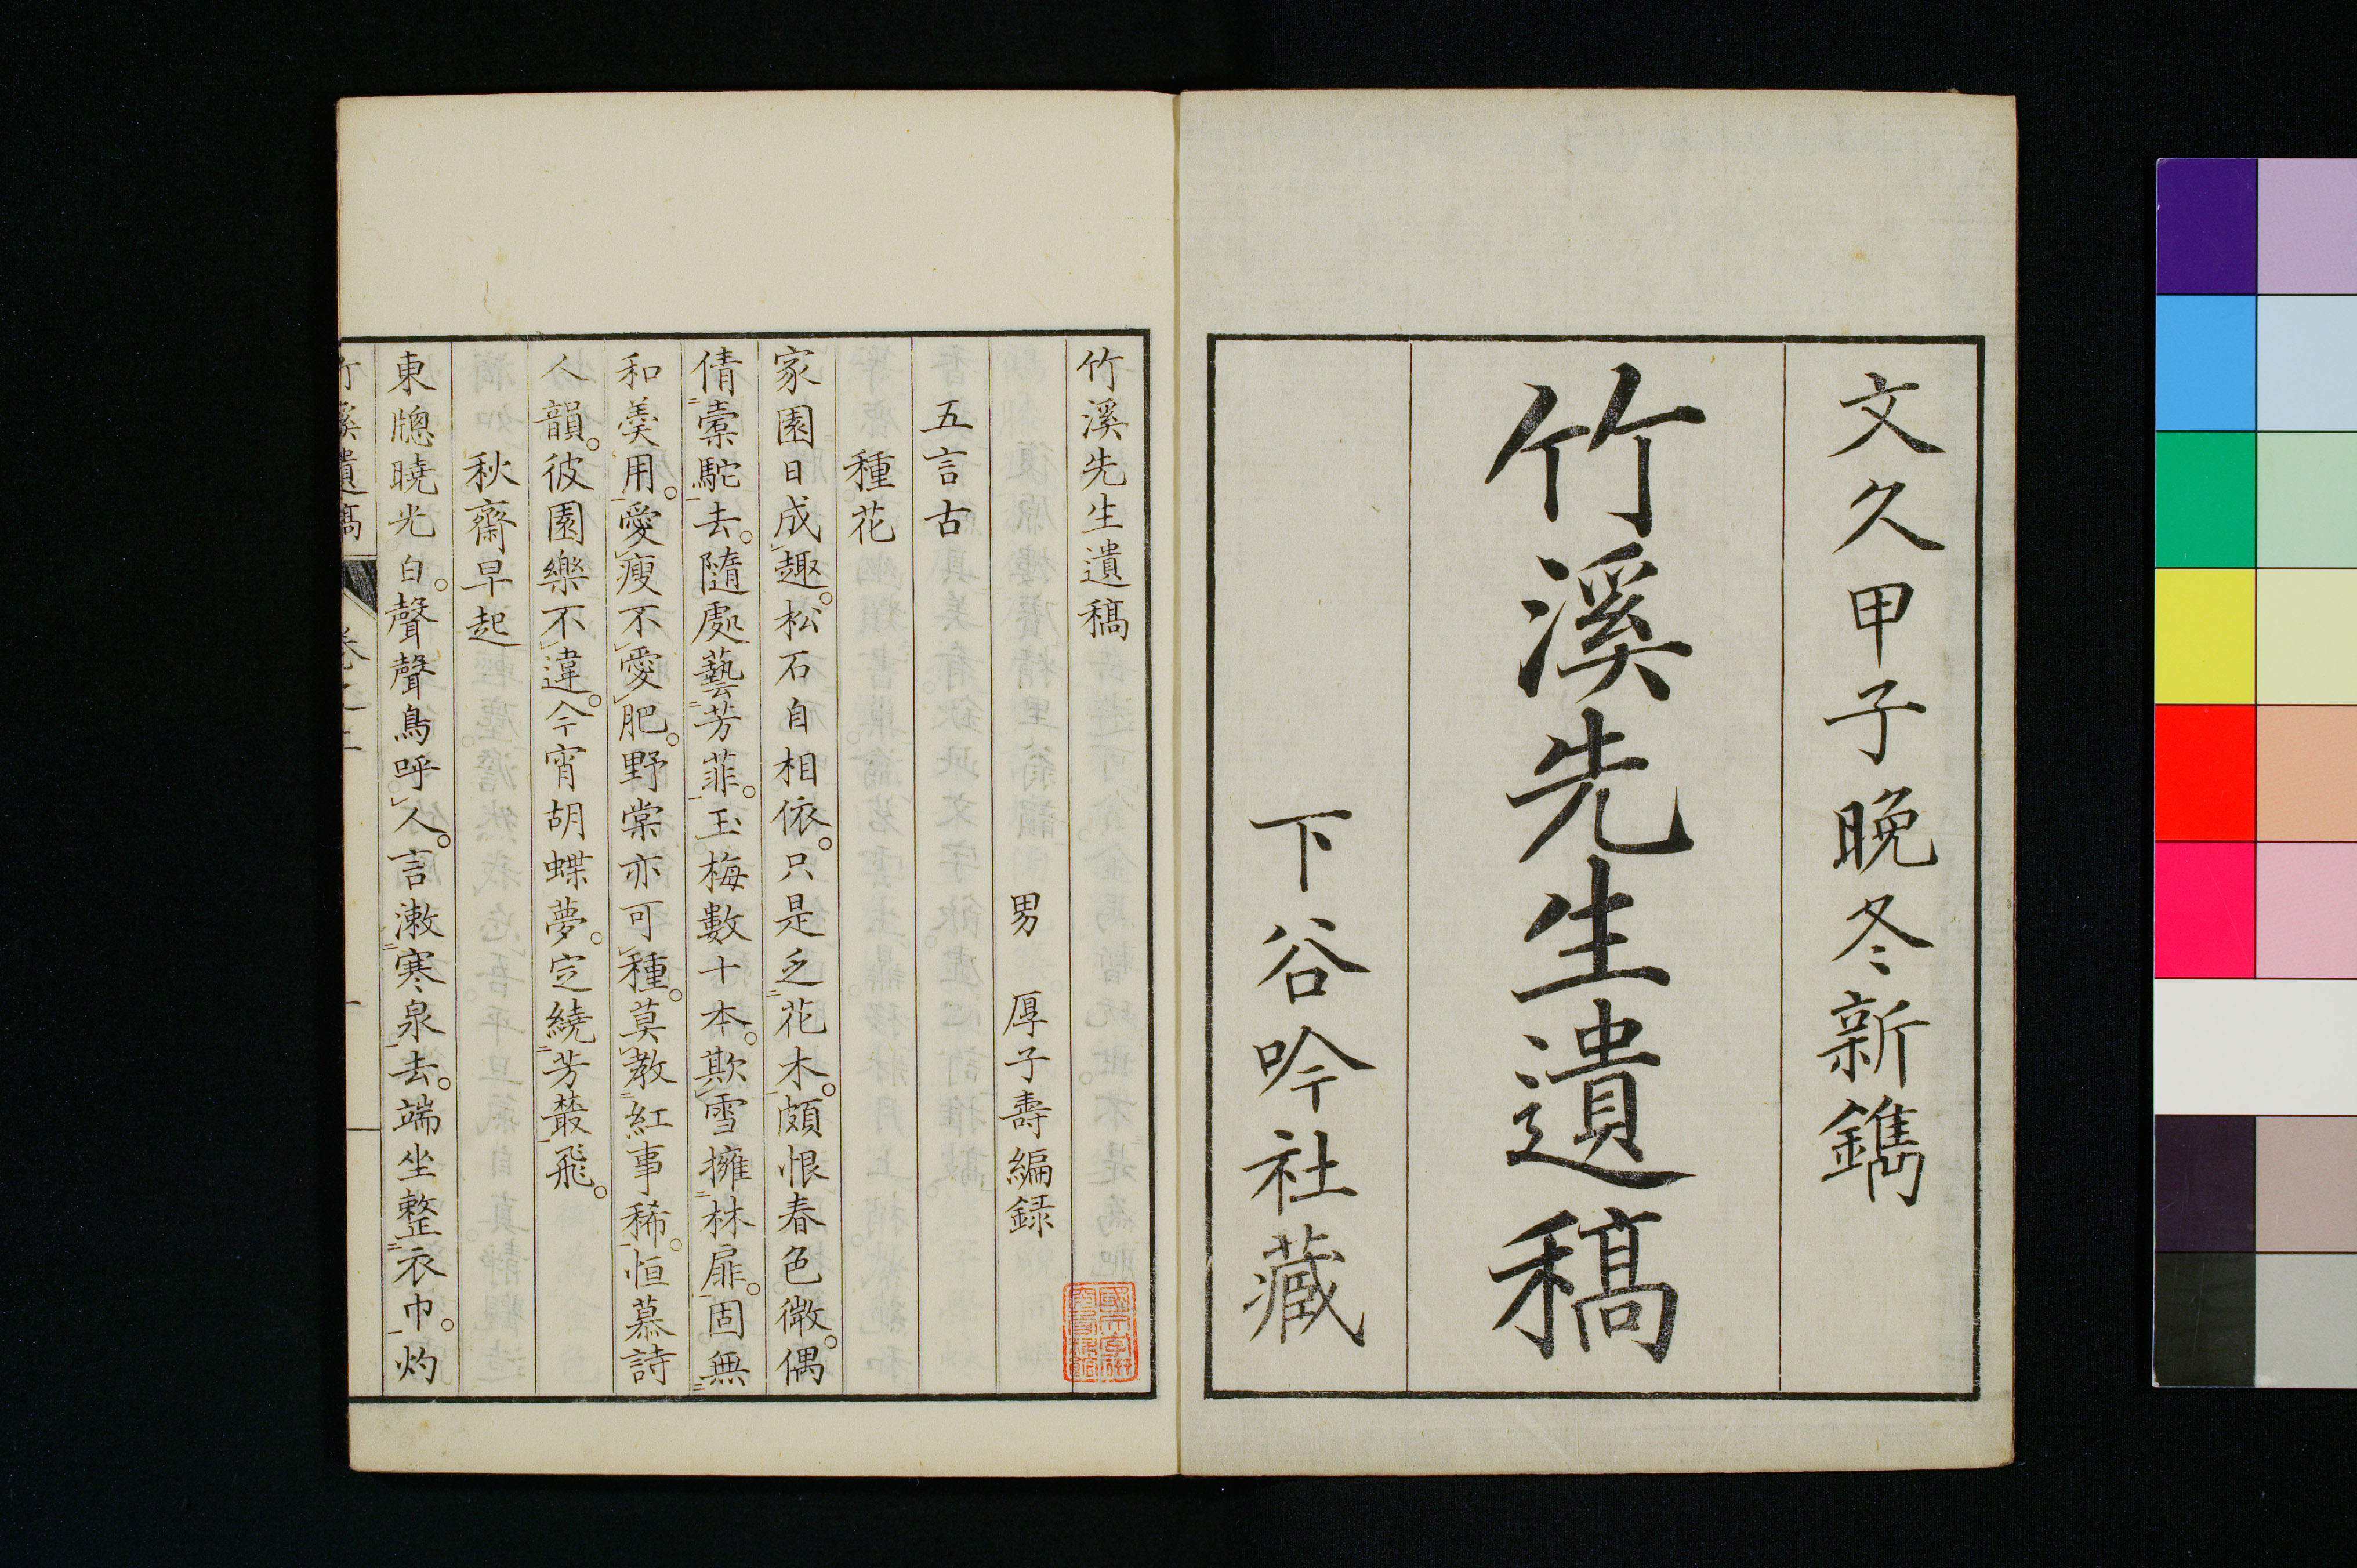 文久甲子晩冬新鐫
竹溪先生遺稿
下谷吟社藏
竹溪先生遺稿
男　厚子壽編録
五言古
種花
家園日成趣。松石自相依。只是乏花木。頗恨春色微。偶
倩橐駝去。隨處藝芳菲。玉梅數十本。欺雪擁林扉。固無
和羹用。愛瘦不愛肥。野棠亦可種。莫教紅事稀。恒慕詩
人韻。彼園樂不違。今宵胡蝶夢。定繞芳叢飛。
秋齋早起
東牕曉光白。聲聲鳥呼人。言漱寒泉去。端坐整衣巾。灼
竹溪遺稿
卷之上
一